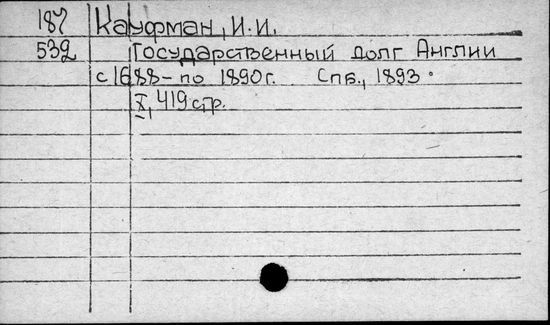 187 Кауфман, И.И.
532 Государственный долг Англии
с 1688-по 1890г. Спб., 1893.
X, 419 стр.